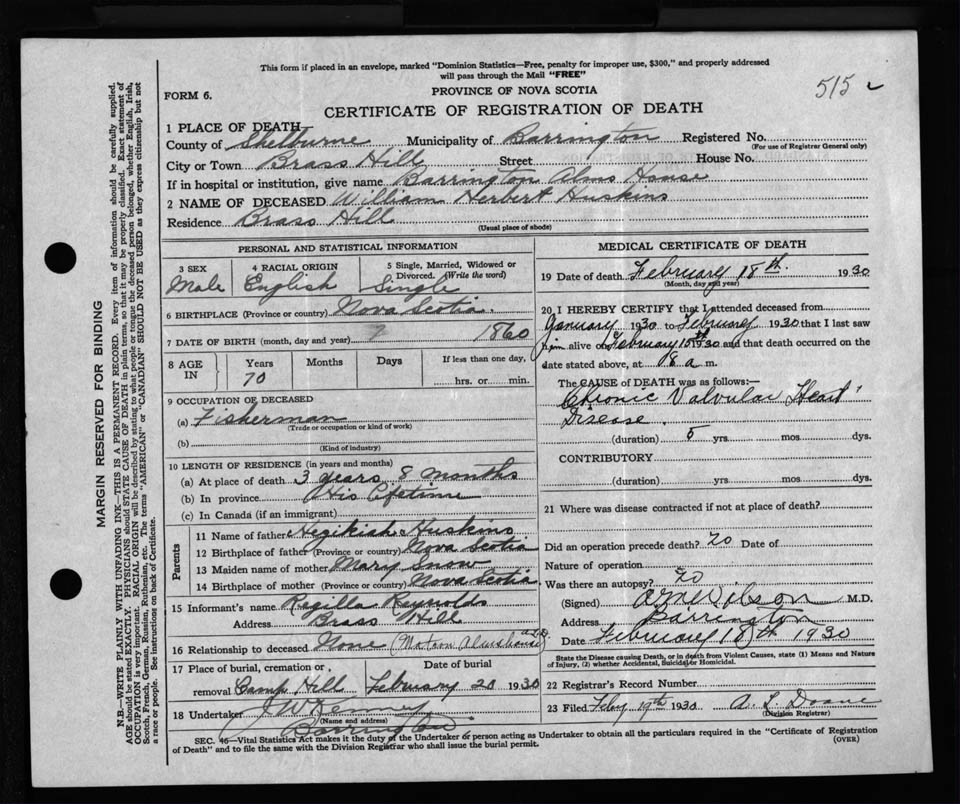 This form if placed in an envelope, marked "Dominion Statistics—Free, penalty for improper use, $300," and properly addressed
will pass through the Mail "FREE"
515
FORM 6.
PROVINCE OF NOVA SCOTIA
CERTIFICATE OF REGISTRATION OF DEATH
1 PLACE OF DEATH
County of Shelburne Municipality of Barrington Registered No.
(For use of Registrar General only)
City or Town Brass Hill Street House No.
If in hospital or institution, give name Barrington Alms House
2 NAME OF DECEASED William Herbert Huskins
Residence Brass Hill
(Usual place of abode)
PERSONAL AND STATISTICAL INFORMATION
3 SEX 4 RACIAL ORIGIN 5 Single, Married, Widowed or
Divorced. (Write the word)
Male English Single
6 BIRTHPLACE (Province or country) Nova Scotia.
7 DATE OF BIRTH (month, day and year) ? 1860
8 AGE IN Years Months Days If less than one day,
70 hrs. or min.
9 OCCUPATION OF DECEASED
(a) Fisherman
(Trade or occupation or kind of work)
(b)
(Kind of industry)
10 LENGTH OF RESIDENCE (in years and months)
(a) At place of death 3 years 8 months
(b) In province His Lifetime
(c) In Canada (if an immigrant)
Parents
11 Name of father Hezikiah Huskins
12 Birthplace of father (Province or country) Nova Scotia
13 Maiden name of mother Mary Snow
14 Birthplace of mother (Province or country) Nova Scotia
15 Informant's name Rezilla Reynolds
Address Brass Hill
16 Relationship to deceased None (Matron Almshouse
17 Place of burial, cremation or Date of burial
removal Camp Hill February 20 1930
18 Undertaker J W Kenney
(Name and address)
Barrington
MEDICAL CERTIFICATE OF DEATH
19 Date of death February 18th. 1930
(Month, day and year)
20 I HEREBY CERTIFY that I attended deceased from
January 1930 to February 1930 that I last saw
him alive on February 1930 and that death occurred on the
date stated above, at 8 a m.
The CAUSE of DEATH was as follows:—
Chronic Valvular Heart
Disease.
(duration) 5 yrs. mos. dys.
CONTRIBUTORY
(duration) yrs. mos. dys.
21 Where was disease contracted if not at place of death?
Did an operation precede death? No Date of
Nature of operation
Was there an autopsy? No
(Signed) Wilson M.D.
Address Barrington
Date February 18th 1930
State the Disease causing Death, or in death from Violent Causes, state (1) Means and Nature
of Injury, (2) whether Accidental, Suicidal or Homicidal.
22 Registrar's Record Number
23 Filed Feby 19th 1930 A. L Doane
(Division Registrar)
SEC. 46—Vital Statistics Act makes it the duty of the Undertaker or person acting as Undertaker to obtain all the particulars required in the "Certificate of Registration
of Death" and to file the same with the Division Registrar who shall issue the burial permit.
(OVER)
MARGIN RESERVED FOR BINDING
N.B.—WRITE PLAINLY WITH UNFADING INK—THIS IS A PERMANENT RECORD. Every item of information should be carefully supplied.
AGE should be stated EXACTLY. PHYSICIANS should STATE CAUSE OF DEATH in plain terms, so that it may be properly classified. Exact statement of
OCCUPATION is very important. RACIAL ORIGIN will be described by stating to what people or tongue the deceased person belonged, whether English, Irish,
Scotch, French, German, Russian, Ruthenian, etc. The terms "AMERICAN" or "CANADIAN" SHOULD NOT BE USED as they express citizenship but not
a race or people. See instructions on back of Certificate.